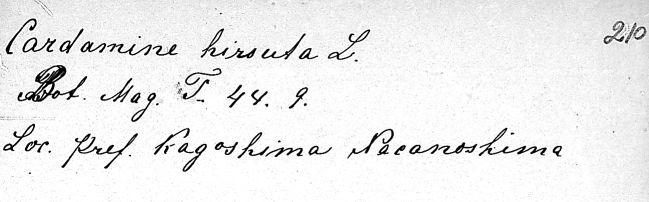 Cardamine hirsuta L. 210
Bot. Mag. T. 44. 9.
Loc. Pref. Kagoshima Nacanoshima